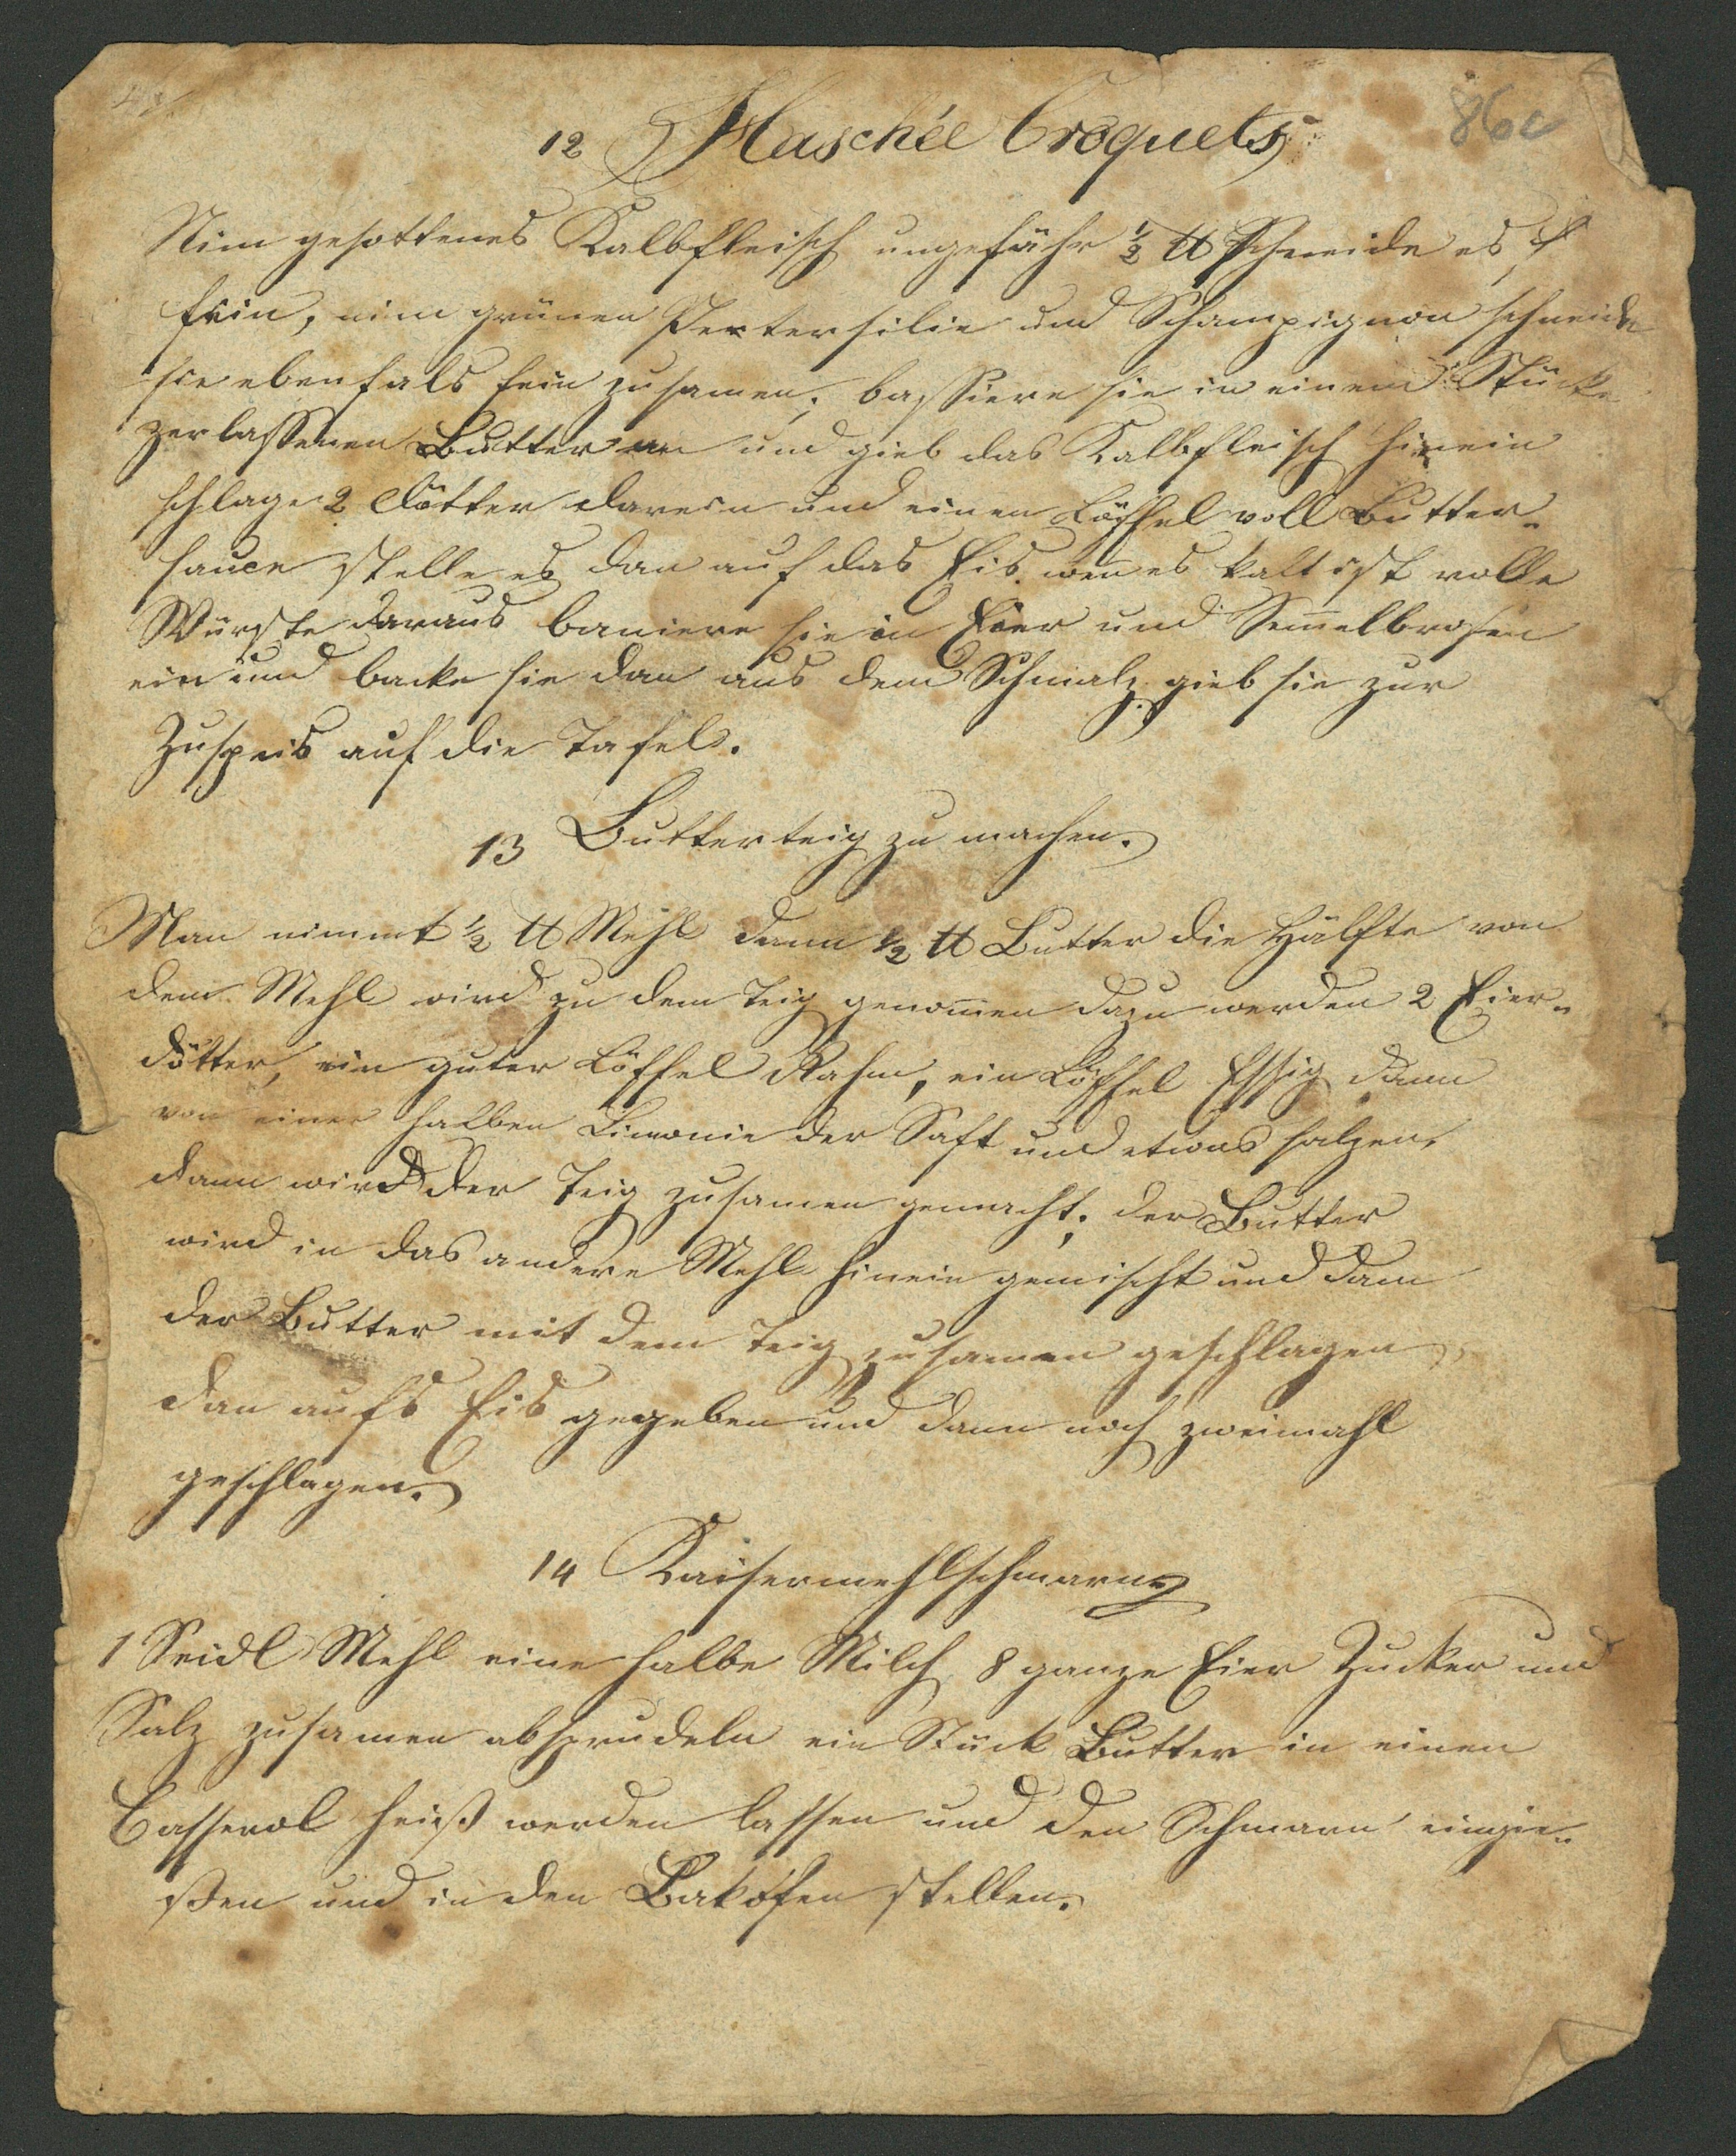 86c
12 Haschée Croquets
Nim gesottenes Kalbfleisch ungefähr ½ ℔ schneide es
fein, nim grünen Petersilie und Schampignon schneide
sie ebenfals fein zusamen, bassiere sie in einem Stücke
zerlassenen Butter an und gieb das Kalbfleisch hinein
schlage 2 Dötter darein und einen Löffel voll Butter-
sauce stelle es dan auf das Eis wen es kalt ist rolle
Würste daraus baniere sie in Eier und Sem̅elbrosen
ein und backe sie dan aus dem Schmalz gieb sie zur
Zuspeis auf die Tafel.
13 Butterteig zu machen.
Man nimmt ½ ℔ Mehl dann ½ ℔ Butter die Hälfte von
dem Mehl wird zu dem Teig genom̅en dazu werden 2 Eier-
dötter, ein guter Löffel Rahm, ein Löffel Essig dann
von einer halben Limonie der Saft und etwas salzen,
dann wird der Teig zusamen gemacht; der Butter
wird in das andere Mehl hinein gemischt und dann
der Butter mit dem Teig zusamen geschlagen,
dan aufs Eis gegeben und dann noch zweimahl
geschlagen.
14 Kaisermehlschmarn
1 Seidl Mehl eine halbe Milch 8 ganze Eier Zucker und
Salz zusamen absprudeln ein Stück Butter in einen
Casserol heiß werden lassen und den Schmarn eingie-
ßen und in den Bakofen stellen.